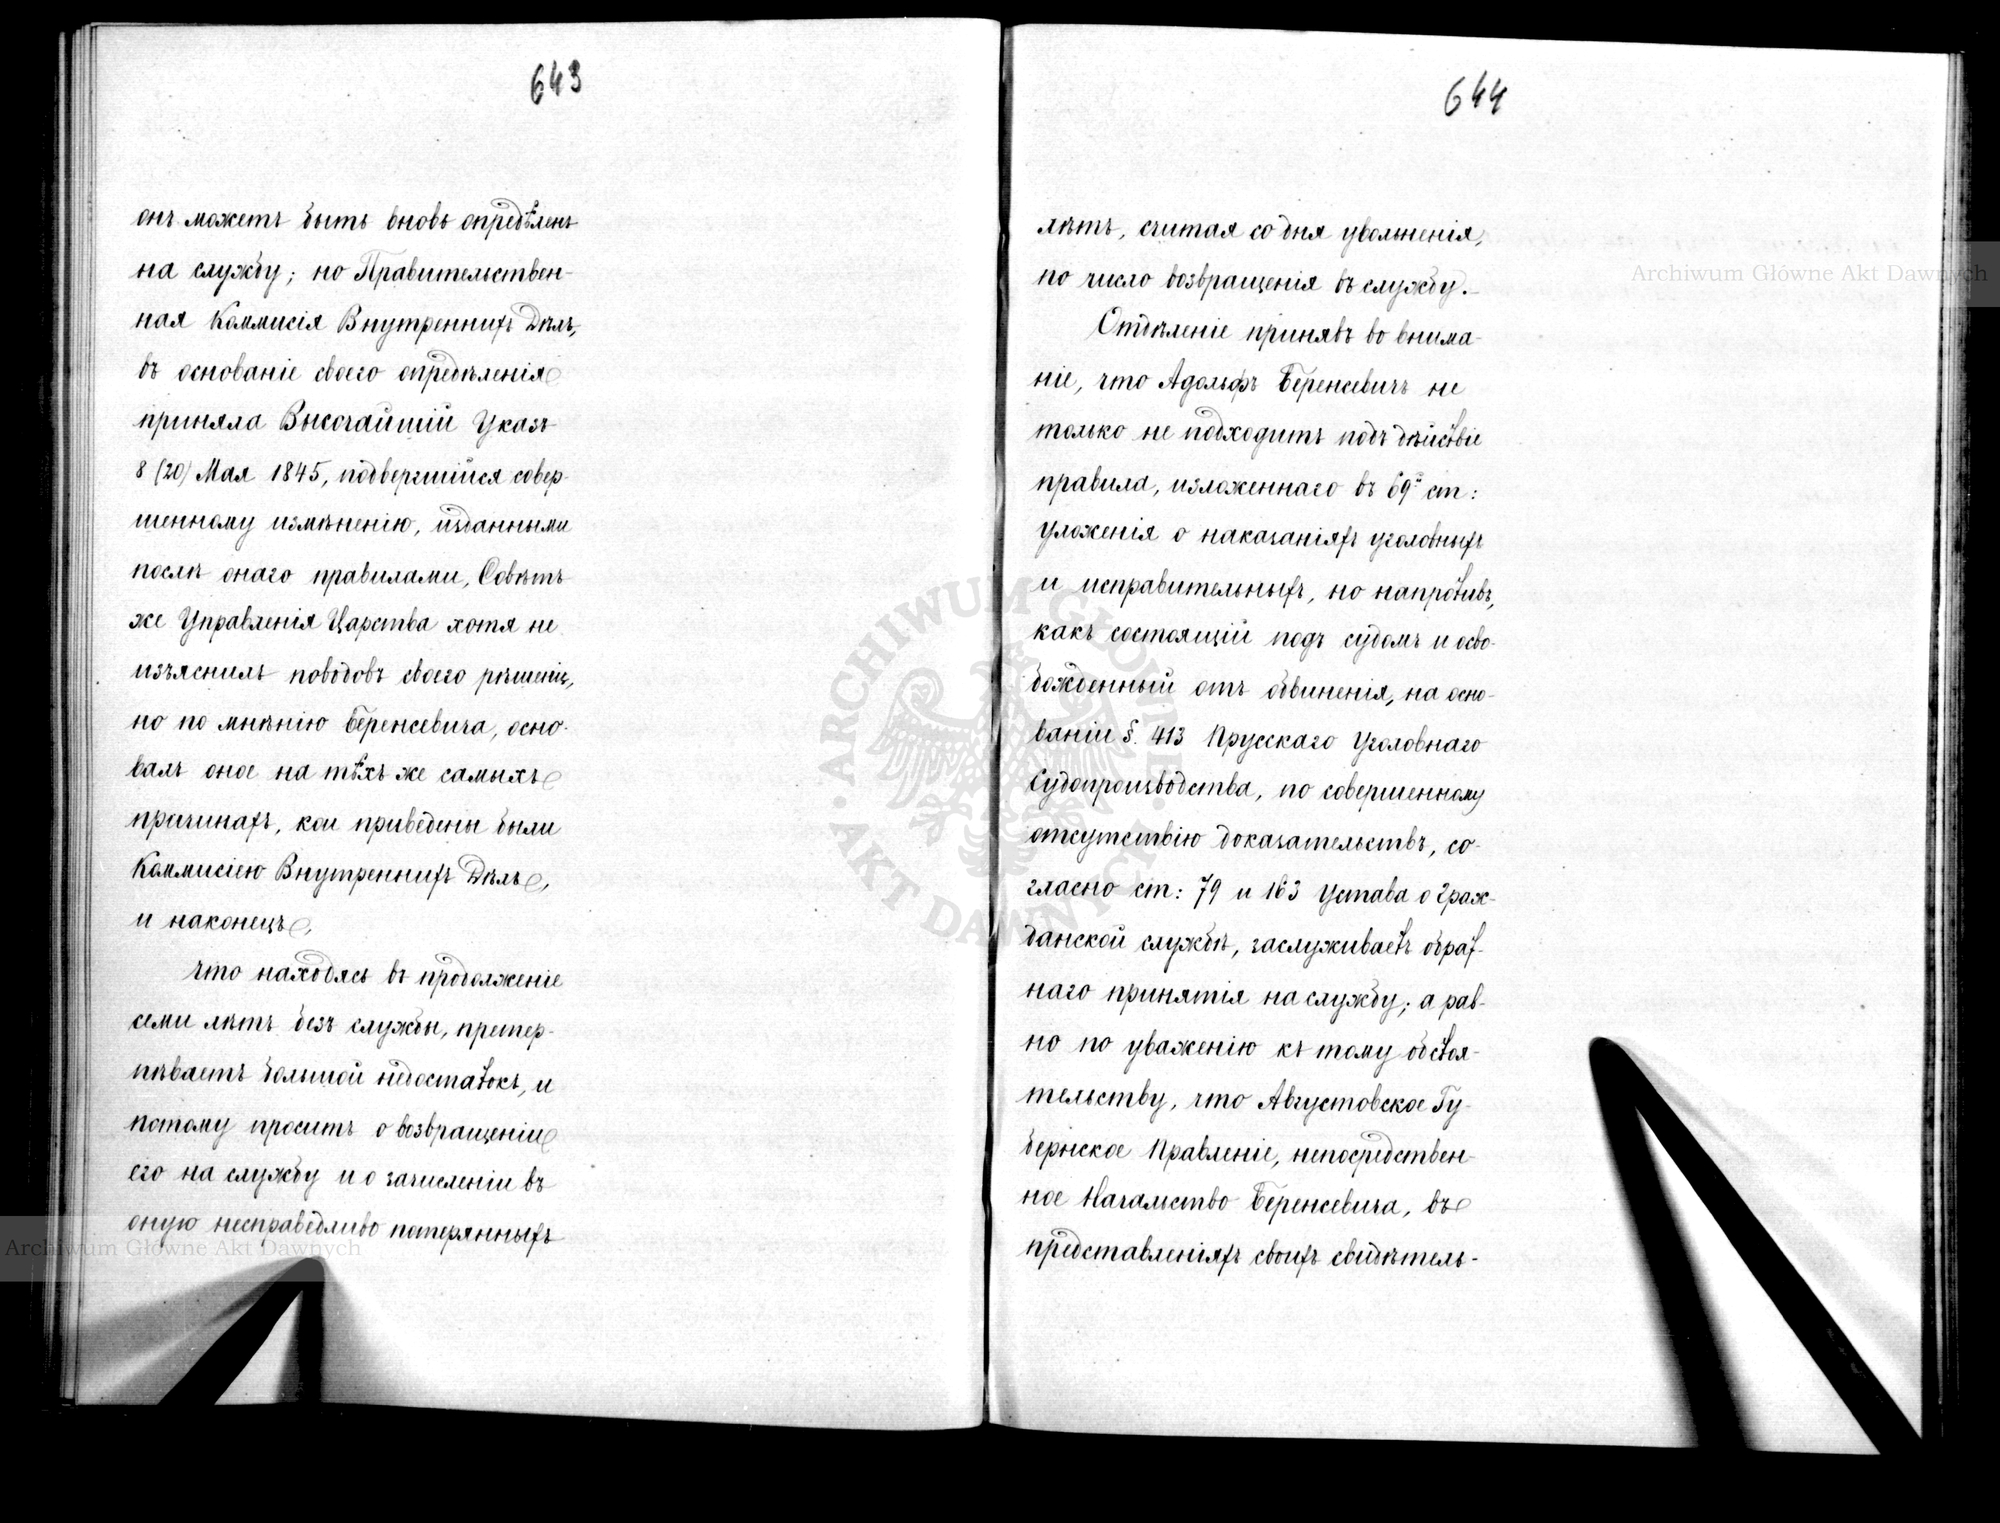 643
онъ можетъ быть вновь опредѣленъ
на службу; но Правительствен-
ная Коммисія Внутреннихъ Дѣлъ,
въ основаніе своего опредѣленія
приняла Высочайшій Указъ
8 (20) Мая 1845, подвергшійся совер-
шенному измѣненію, изданными
послѣ онаго правилами, Совѣтъ
же Управленія Царства хотя не
изъяснилъ поводовъ своего рѣшенія,
но по мнѣнію Беренсевича, осно-
валъ оное на тѣхъ же самыхъ
причинахъ, кои приведены были
Коммисіею Внутреннихъ Дѣлъ,
и наконецъ,
что находясь въ продолженіе
семи лѣтъ безъ службы, претер-
пѣваетъ большой недостатокъ, и
потому проситъ о возвращеніи
его на службу и о зачисленіи въ
оную несправедливо потерянныхъ
644
лѣтъ, считая со дня увольненія,
по число возвращенія въ службу.
Отдѣленіе принявъ во внима-
ніе, что Адольфъ Беренсевичъ не
только не подходитъ подъ дѣйствіе
правила, изложеннаго въ 69й ст:
уложенія о наказаніяхъ уголовныхъ
и исправительныхъ, но напротивъ,
какъ состоящій подъ судомъ и осво-
божденный отъ обвиненія, на осно-
ваніи §. 413 Прусскаго Уголовнаго
Судопроизводства, по совершенному
отсутствію доказательствъ, со-
гласно ст: 79 и 163 Устава о граж-
данской службѣ, заслуживаетъ обрат-
наго принятія на службу; а рав-
но по уваженію къ тому обстоя-
тельству, что Августовское Гу-
бернское Правленіе, непосредствен-
ное Начальство Беренсевича, въ
представленіяхъ своихъ свидѣтель-
Archiwum Główne Akt Dawnych
Archiwum Główne Akt Dawnych
ARCHIWUM GŁÓWNE AKT DAWNYCH